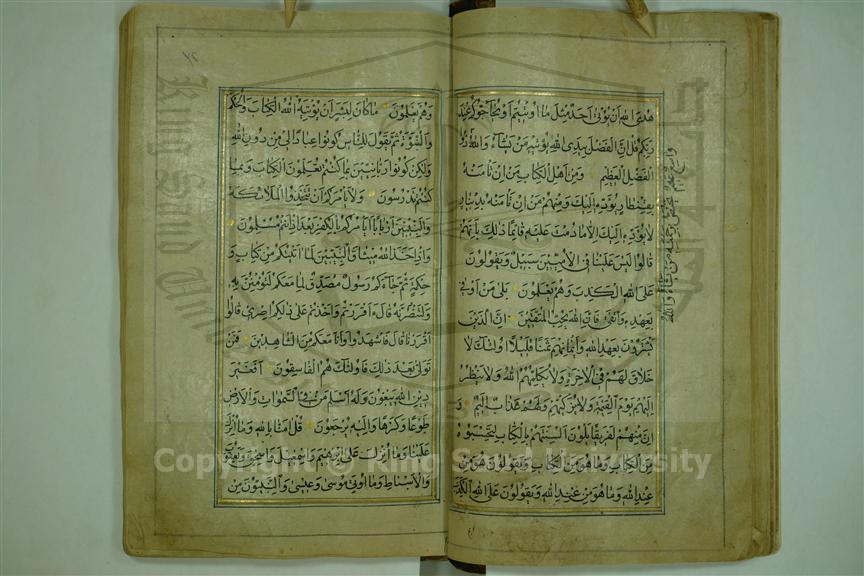 هدى الله ان يؤتى احد مثل ما اوتيتم او يحاجوكم عند
ربكم قل ان الفضل بيد الله يؤتيه من يشاء والله ذو
الفضل العظيم ومن اهل الكتاب من ان تامنه
بقنطار يؤده اليك ومنهم من ان تامنه بدينار
لا يؤده اليك الا ما دمت عليه قائما ذلك بانهم
قالوا ليس علينا فى الاميين سبيل ويقولون
على الله الكذب وهم يعلمون بلى من اوفى
بعهده واتقى فان الله يحب المتقين ان الذين
يشترون بعهد الله وايمانهم ثمنا قليلا اولئك لا
خلاق لهم فى الاخرة ولا يكلمهم الله ولا ينظر
اليهم يوم القيمة ولا يزكيهم ولهم عذاب اليم و
ان منهم لفريقا يلون السنتهم بالكتاب لتحسبوه
من الكتاب وما هو من الكتاب ويقولون هو من
عند الله وما هو من عند الله ويقولون على الله الكذب
واسع عليم يختص برحمته من يشاء والله
وهم يعلمون ما كان لبشر ان يؤتيه الله الكتاب والحكم
والنبوة ثم يقول للناس كونوا عبادا لى من دون الله
ولكن كونوا ربانيين بما كنتم تعلمون الكتاب وبما
كنتم تدرسون ولا يامركم ان تتخذوا الملائكة
والنبيين اربابا ايامركم بالكفر بعد اذ انتم مسلمون
واذ اخذ الله ميثاق النبيين لما اتيتكم من كتاب و
حكمة ثم جاءكم رسول مصدق لما معكم لتؤمنن به
ولتنصرنه قال ءاقررتم واخذتم على ذلكم اصرى قالوا
اقررنا قال فاشهدوا وانا معكم من الشاهدين فمن
تولى بعد ذلك فاولئك هم الفاسقون افغير
دين الله يبغون وله اسلم من فى السموات والارض
طوعا وكرها واليه يرجعون قل امنا بالله وما انزل
علينا وما انزل على ابرهيم واسمعيل واسحق ويعقوب
والاسباط وما اوتى موسى وعيسى والنبيون من
King Saud University
Copyright © King Saud University